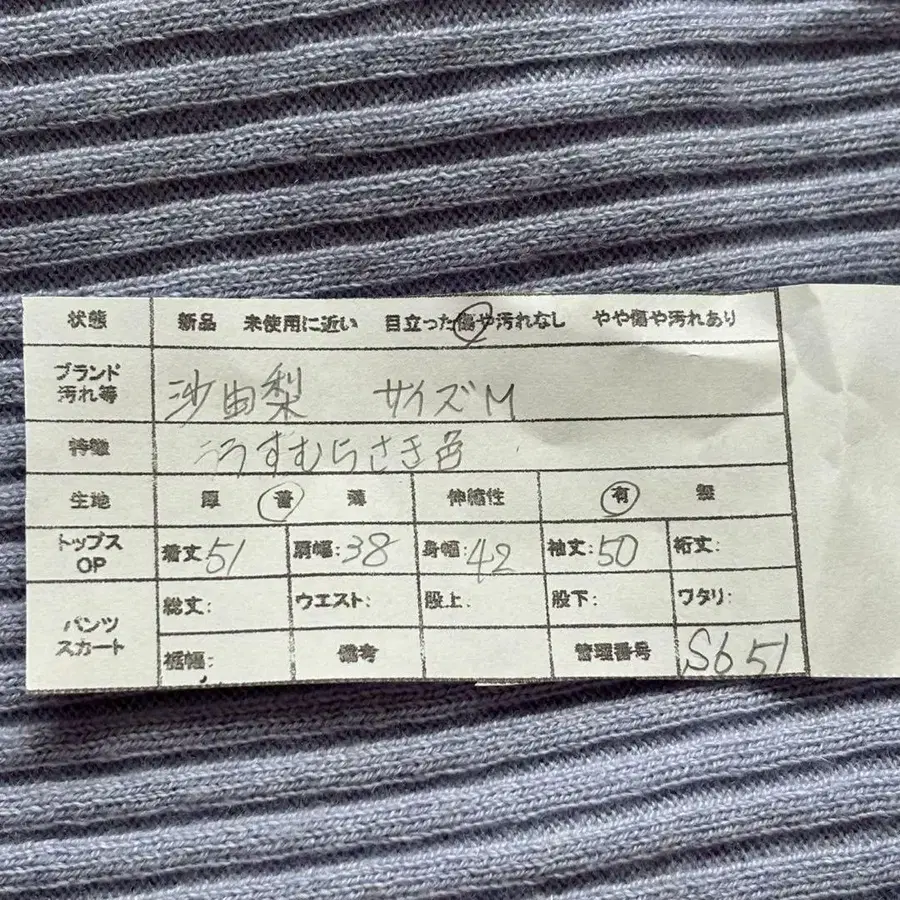 状態 新品 未使用に近い 目立った傷や汚れなし やや傷や汚れあり
ブランド
汚れ等 沙由梨 サイズM
特徴 うすむらさき色
生地 厚 普 薄 伸縮性 有 無
トップス
OP 着丈51 肩幅:38 身幅:42 袖丈:50 裄丈:
パンツ
スカート 総丈: ウエスト: 股上: 股下: ワタリ:
裾幅: 備考 管理番号 S651